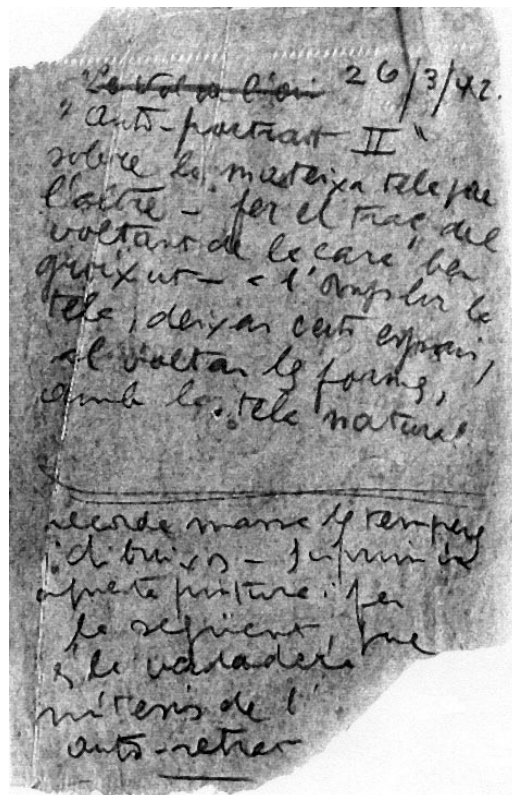 26/3/42.
"auto-portrait II"
sobre la mateixa tela que
l'altre - fer el traç del
voltant de la cara ben
gruixut - a l'omplir la
tela, deixar certs espais,
al voltan les formes,
amb la tela natural
recorda massa les temperes
i dibuixos - suprimir
aquesta pintura i fer
la següent, que
és la vadadera
síntesis de l'
auto-retrat